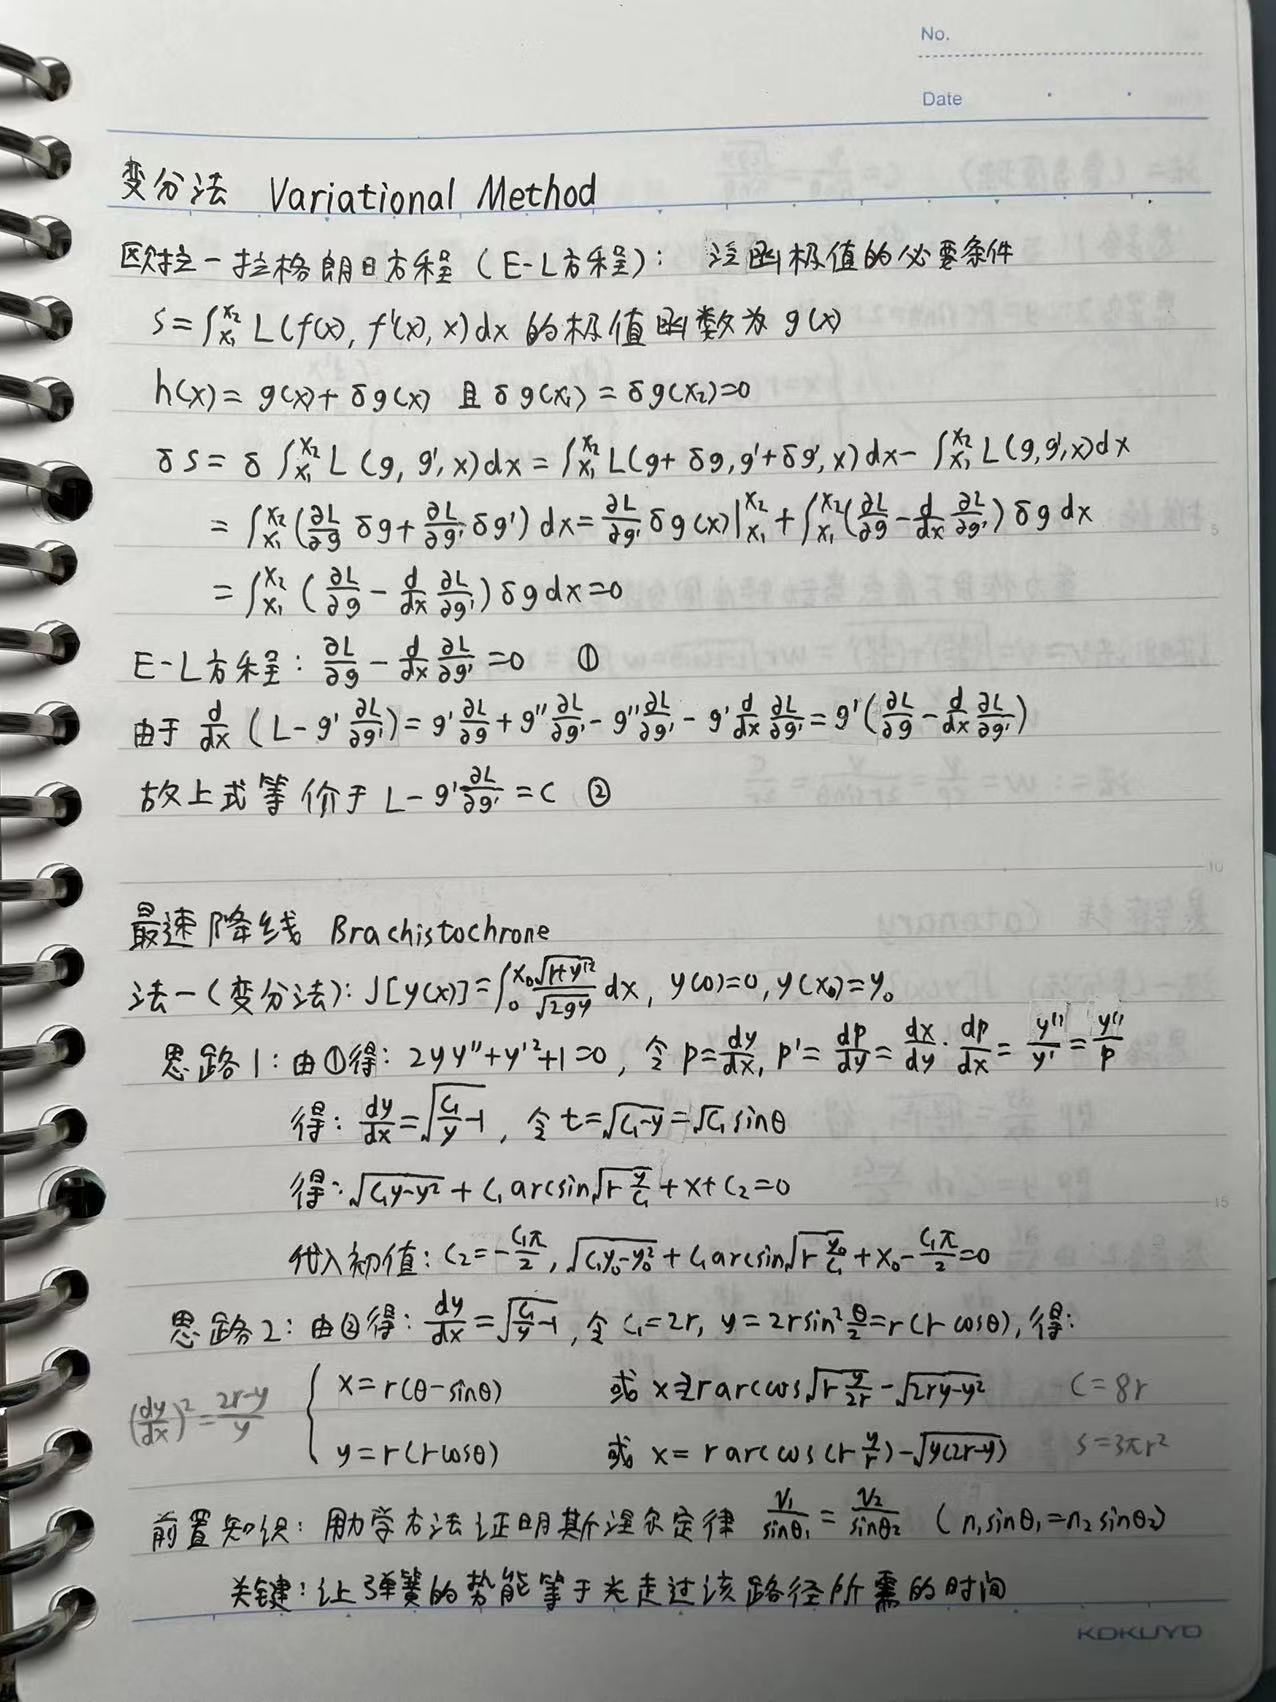 No.
Date
变分法 Variational Method
欧拉-拉格朗日方程（E-L方程）：泛函极值的必要条件
S=∫_{x₁}^{x₂} L(f(x), f'(x), x)dx 的极值函数为 g(x)
h(x) = g(x)+δg(x) 且 δg(x₁) = δg(x₂)=0
δS = δ∫_{x₁}^{x₂} L(g, g', x)dx = ∫_{x₁}^{x₂} L(g+δg, g'+δg', x)dx - ∫_{x₁}^{x₂} L(g,g',x)dx
= ∫_{x₁}^{x₂} (∂L/∂g δg + ∂L/∂g' δg')dx = ∂L/∂g' δg(x)|_{x₁}^{x₂} + ∫_{x₁}^{x₂} (∂L/∂g - d/dx ∂L/∂g')δg dx
= ∫_{x₁}^{x₂} (∂L/∂g - d/dx ∂L/∂g')δg dx=0
E-L方程: ∂L/∂g - d/dx ∂L/∂g' = 0 ①
由于 d/dx (L-g' ∂L/∂g') = g' ∂L/∂g + g'' ∂L/∂g' - g'' ∂L/∂g' - g' d/dx ∂L/∂g' = g'(∂L/∂g - d/dx ∂L/∂g')
故上式等价于 L-g' ∂L/∂g' = C ②
最速降线 Brachistochrone
法一（变分法）: J[y(x)]=∫_0^{x₀} √(1+y'²)/√(2gy) dx, y(0)=0, y(x₀)=y₀
思路1: 由①得: 2yy''+y'²+1=0, 令 p=dy/dx, p'=dp/dy=dx/dy·dp/dx=y''/y'=y''/p
得: dy/dx=√(C₁/y-1), 令 t=√(C₁-y)=√C₁ sinθ
得: √(C₁y-y²)+C₁arcsin√(1-y/C₁)+x+C₂=0
代入初值: C₂=-C₁π/2, √(C₁y₀-y₀²)+C₁arcsin√(1-y₀/C₁)+x₀-C₁π/2=0
思路2: 由②得: dy/dx=√(C₁/y-1), 令 C₁=2r, y=2rsin²θ/2=r(1-cosθ), 得:
(dy/dx)²=(2r-y)/y { x=r(θ-sinθ) 或 x=2rarccos√(1-y/2r)-√(2ry-y²) C=8r
y=r(1-cosθ) 或 x=rarccos(1-y/r)-√(y(2r-y)) S=3πr²
前置知识: 用力学方法证明斯涅尔定律 v₁/sinθ₁=v₂/sinθ₂ (n₁sinθ₁=n₂sinθ₂)
关键: 让弹簧的势能等于光走过该路径所需的时间
KOKUYO